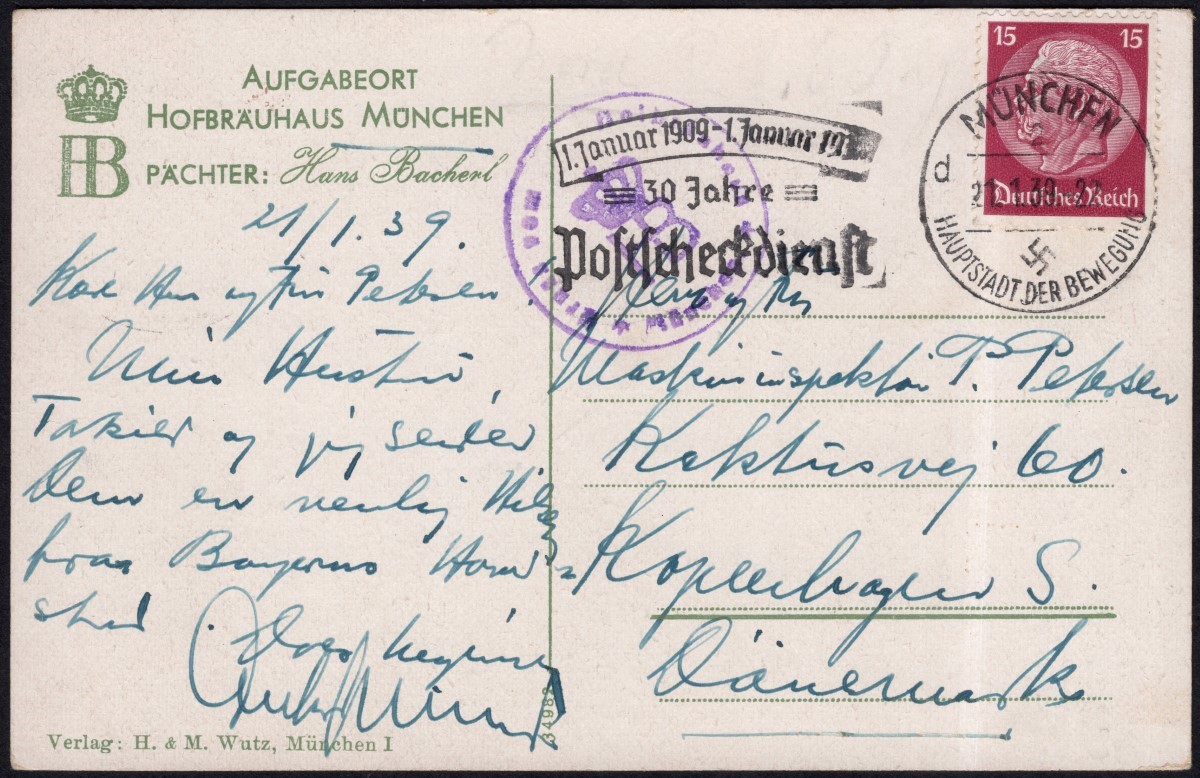 AUFGABEORT
HOFBRÄUHAUS MÜNCHEN
HB
PÄCHTER: Hans Bacherl
21/1.39.
Kære Hr. og Fru Petersen
Min Hustru,
og jeg sender
Dem en venlig Hilsen
fra Bayerns Hoved=
stad
Verlag: H. & M. Wutz, München I
34982
1. Januar 1909-1. Januar 19
30 Jahre
Postscheckdienst
15 15
Deutsches Reich
MÜNCHEN
2
d
21.1.39.-22
HAUPTSTADT DER BEWEGUNG
München
Herr og Fru
Maskininspektør P. Petersen
Kaktusvej 60.
Kopenhagen S.
Dänemark